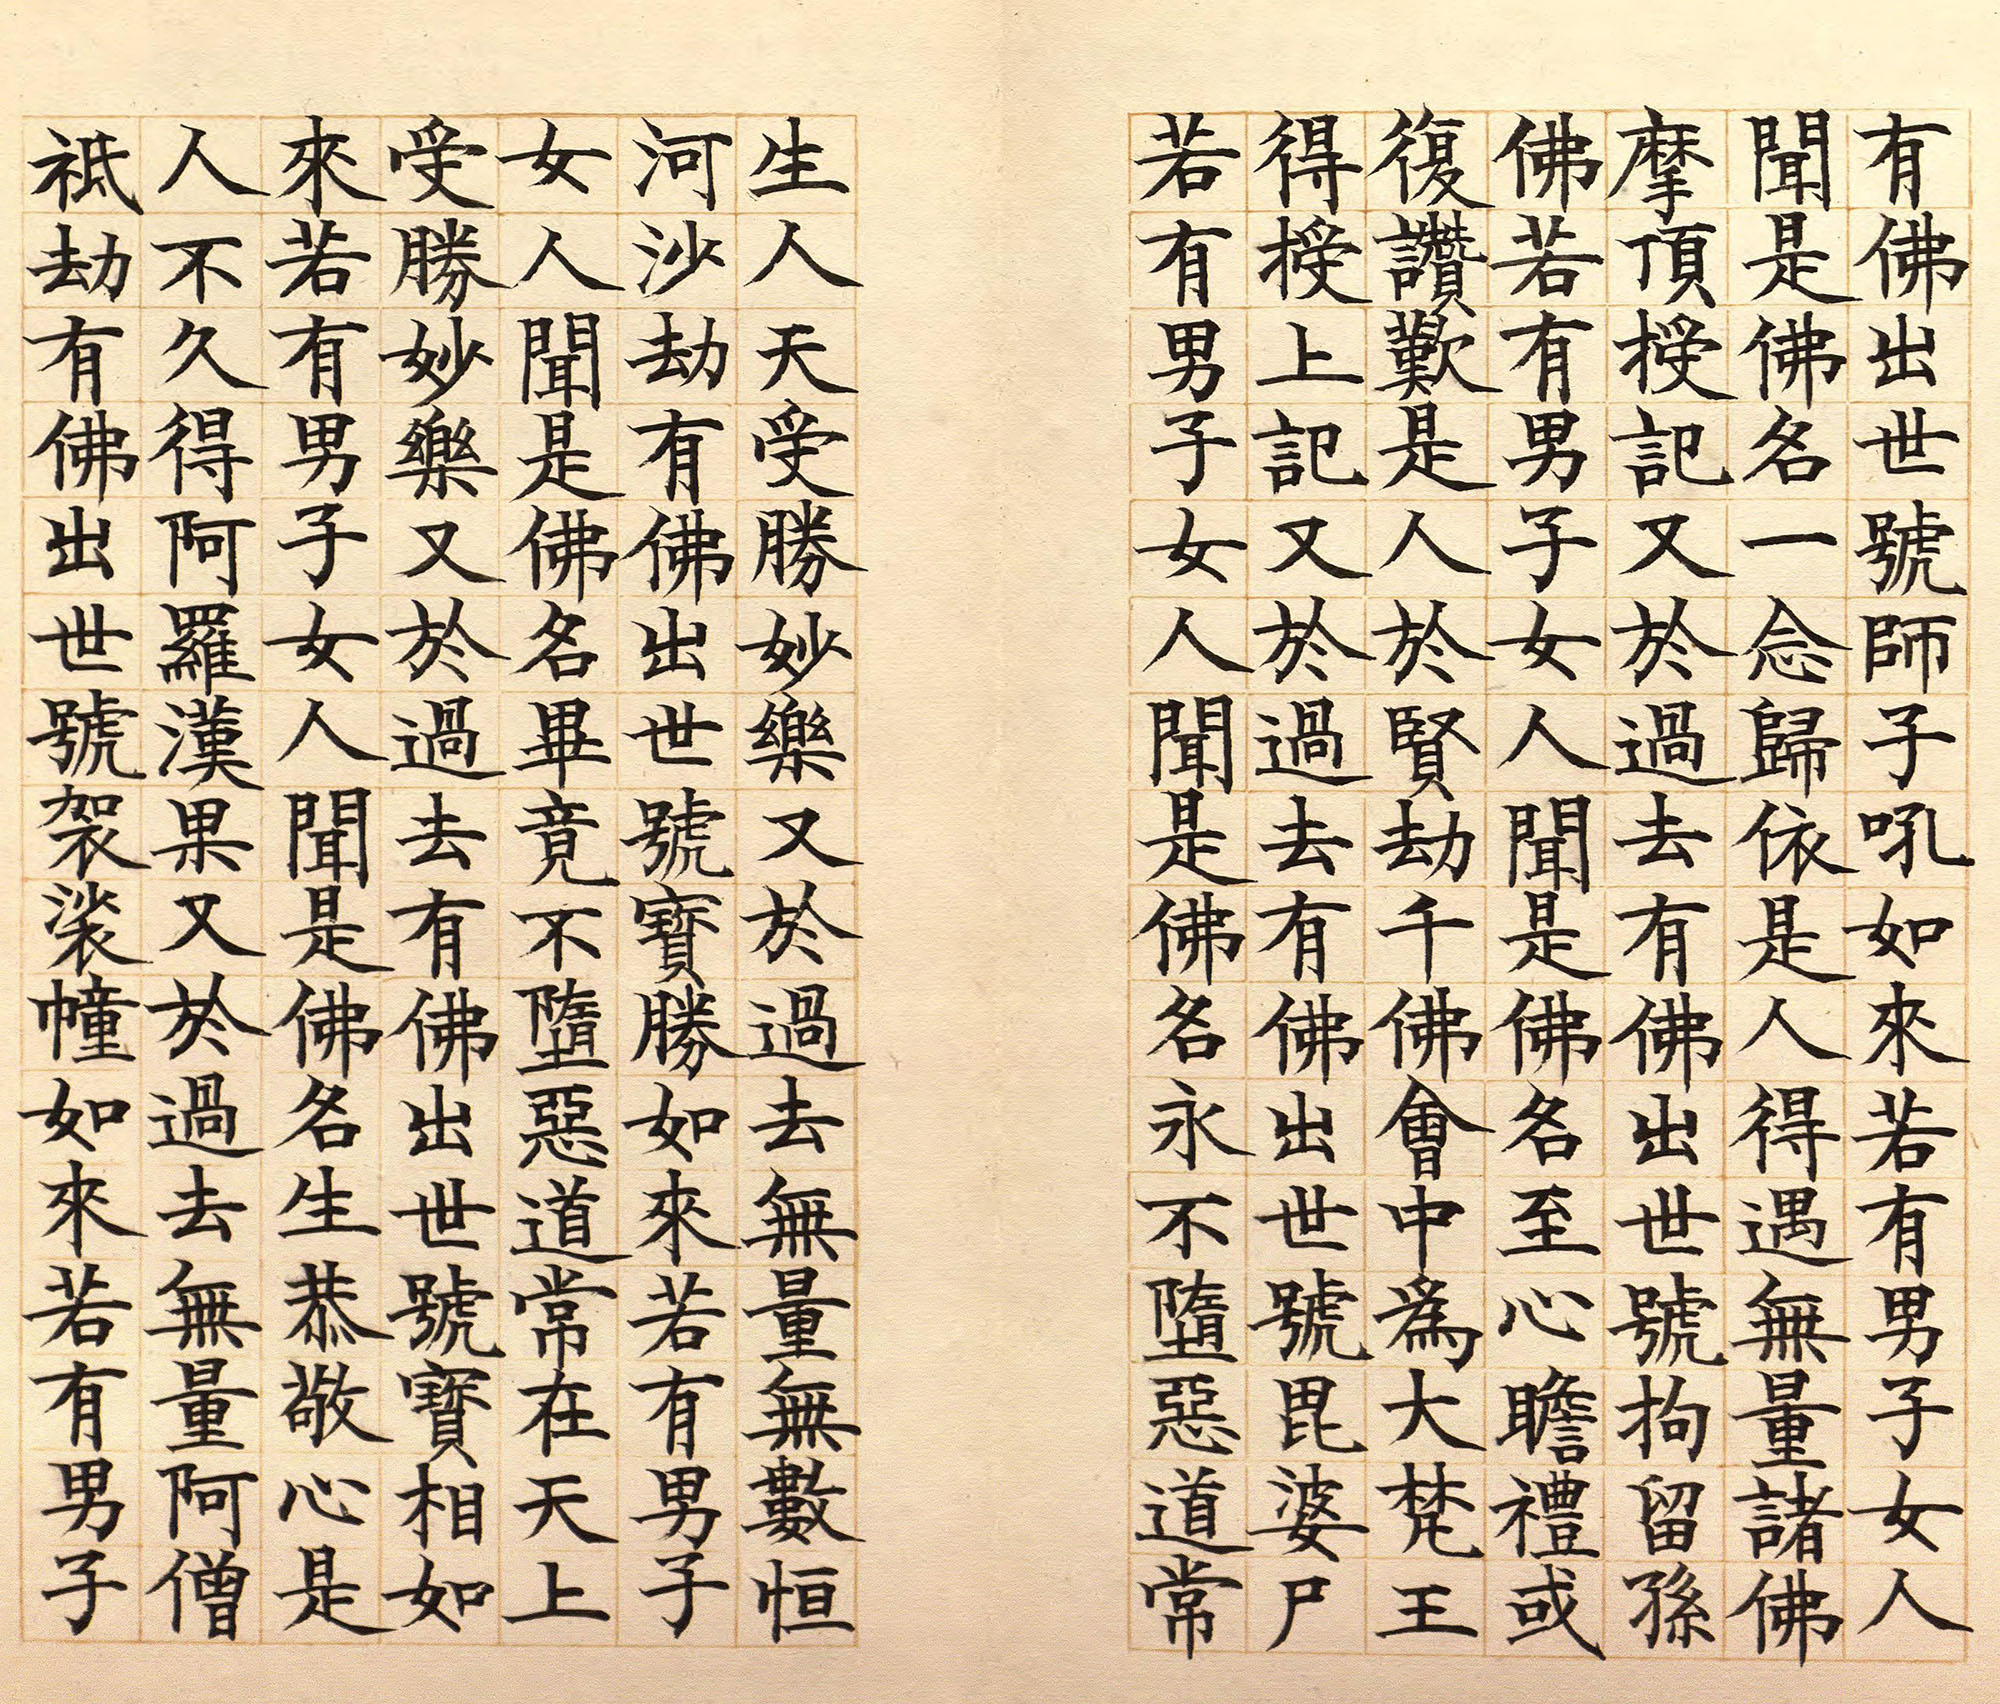 有佛出世號師子吼如來若有男子女人
聞是佛名一念歸依是人得遇無量諸佛
摩頂授記又於過去有佛出世號拘留孫
佛若有男子女人聞是佛名至心瞻禮或
復讚歎是人於賢劫千佛會中為大梵王
得授上記又於過去有佛出世號毘婆尸
若有男子女人聞是佛名永不墮惡道常
生人天受勝妙樂又於過去無量無數恒
河沙劫有佛出世號寶勝如來若有男子
女人聞是佛名畢竟不墮惡道常在天上
受勝妙樂又於過去有佛出世號寶相如
來若有男子女人聞是佛名生恭敬心是
人不久得阿羅漢果又於過去無量阿僧
祇劫有佛出世號袈裟幢如來若有男子